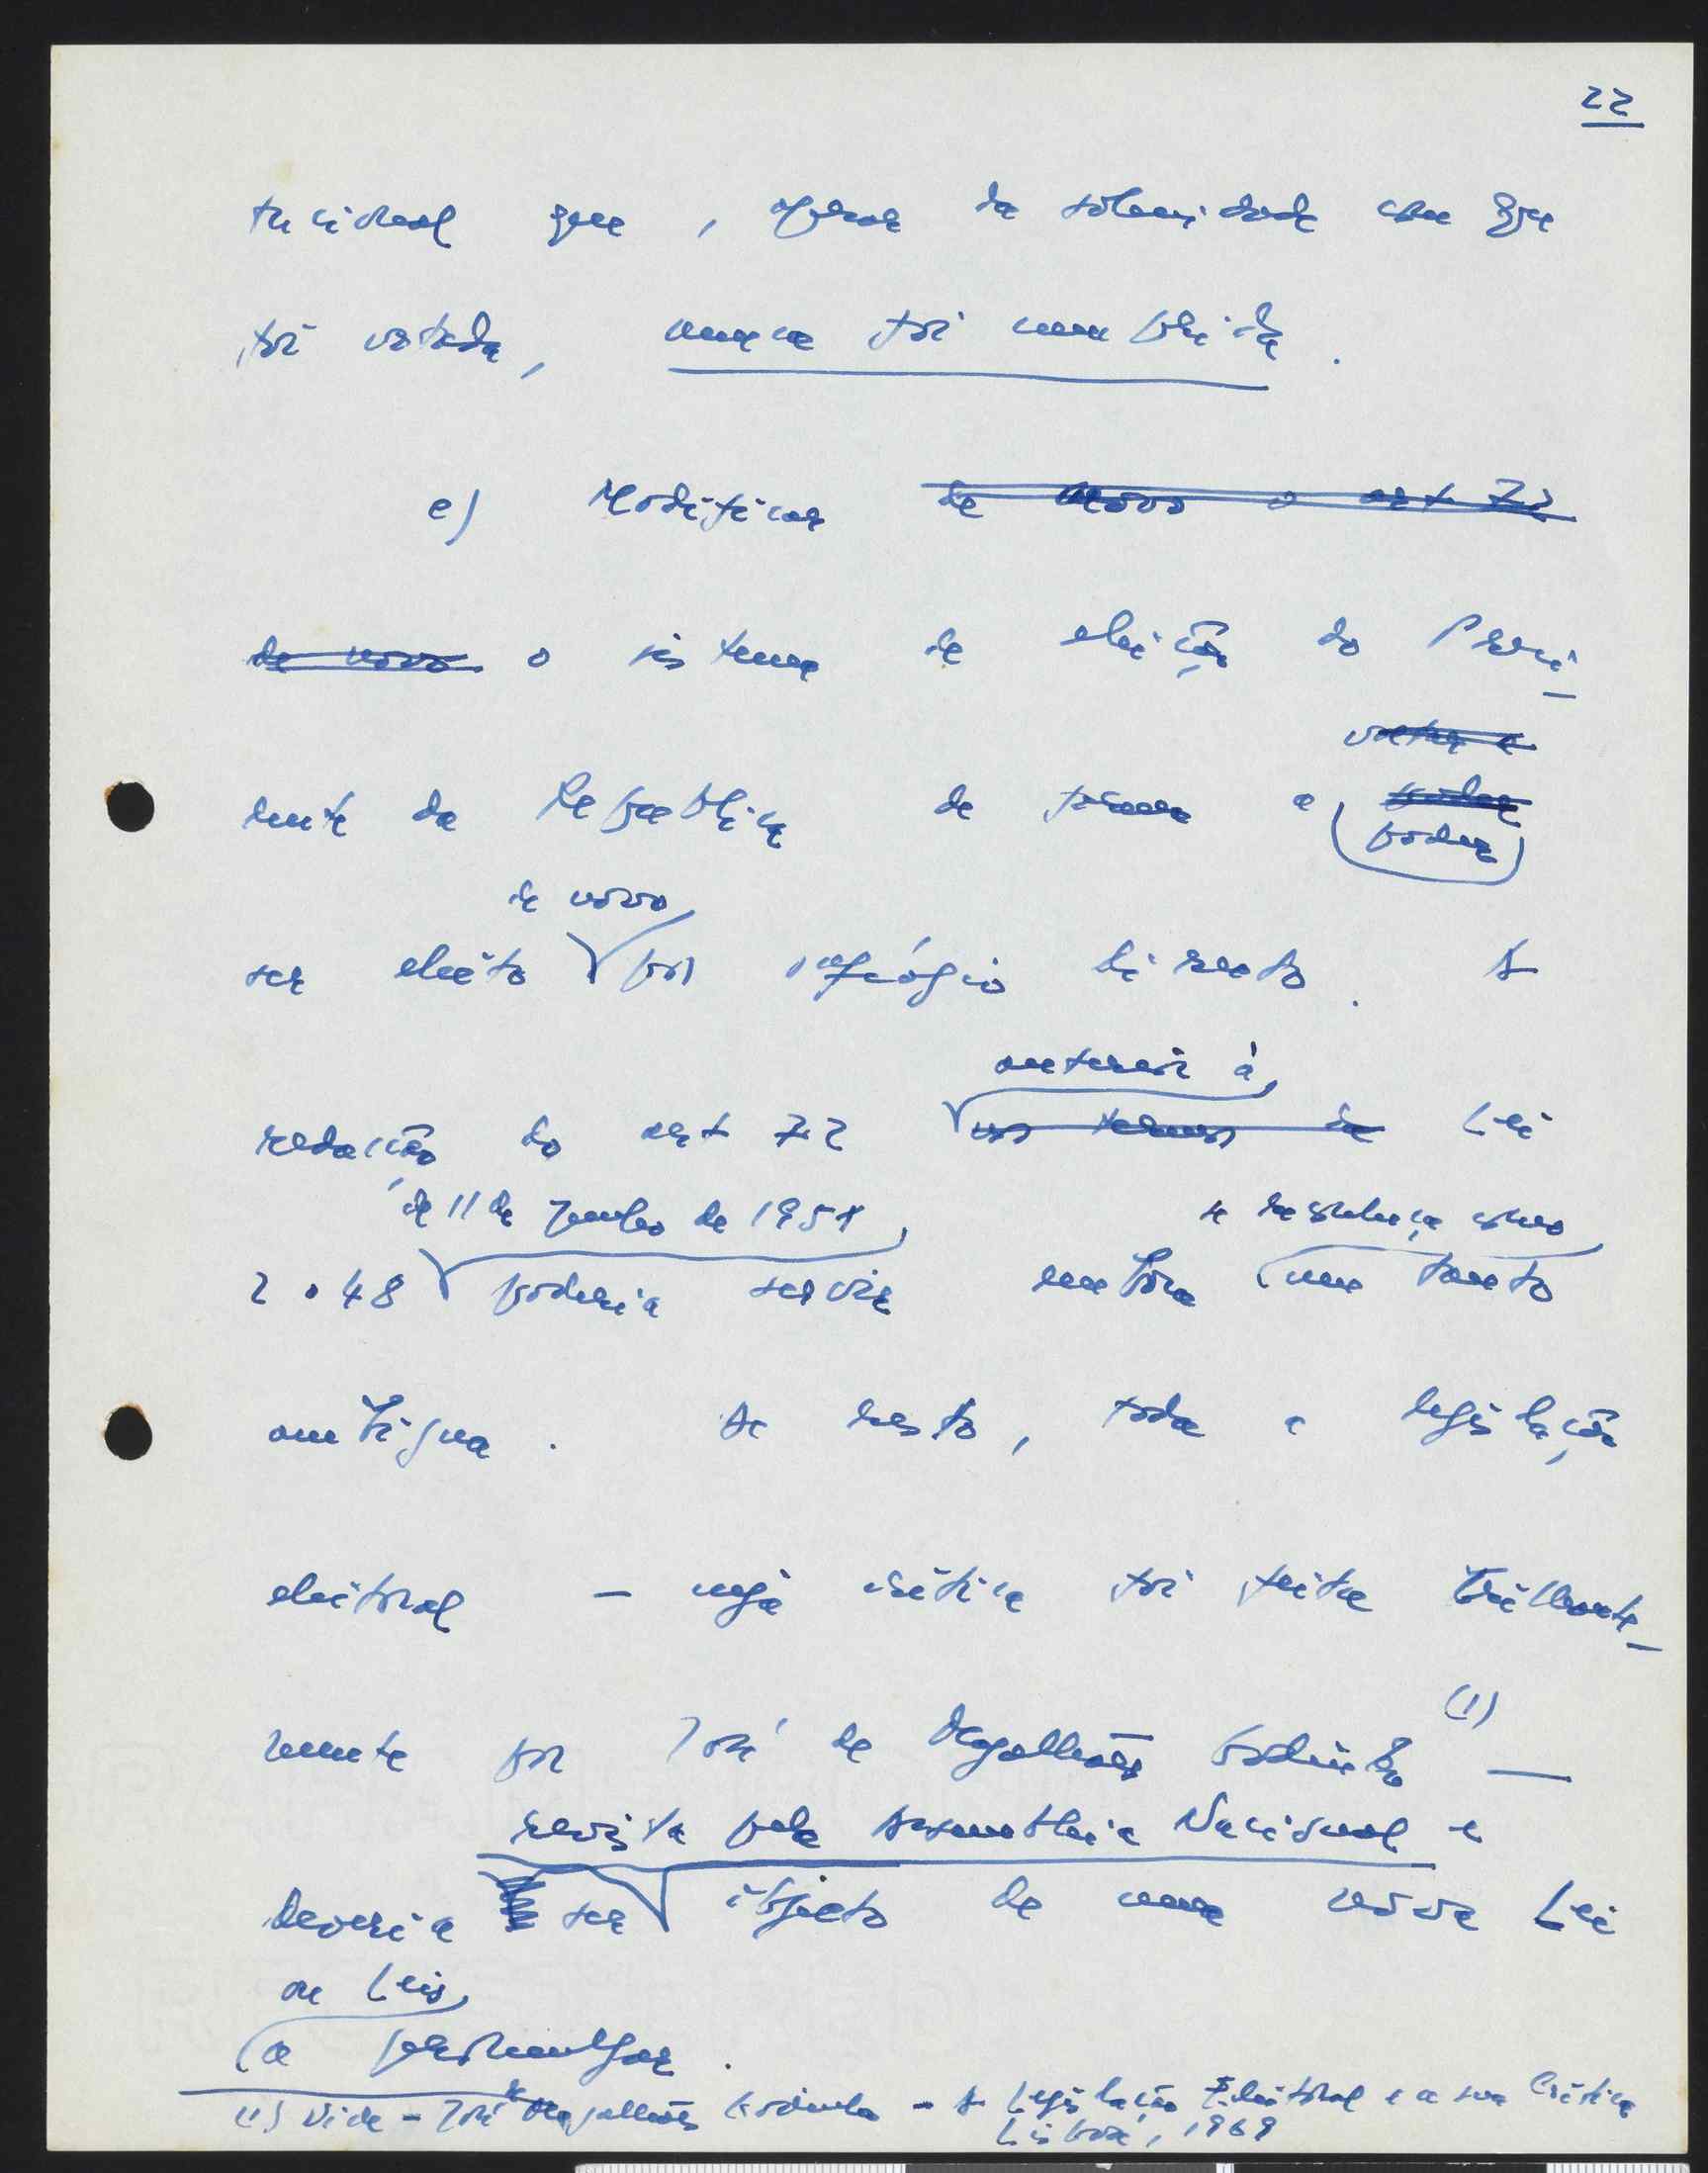 22
tucional que, apesar da solenidade com que
foi votada, nunca foi cumprida.
e) Modificar de novo o art 72
de novo o sistema de eleição do Presi-
voltar a
dente da República de forma a poder
de novo
ser eleito por sufrágio directo. A
anterior à
redacção do art 72 nos termos da Lei
de 11 de Junho de 1951
2.048 poderia servir embora um tanto
ambígua. De resto, toda a legislação
eleitoral – cuja crítica foi feita brilhante-
mente por José de Magalhães Godinho (1) —
revista pela Assembleia Nacional e
deveria ser objecto de uma nova Lei
ou Leis
a promulgar.
(1) Vide – José de Magalhães Godinho – A Legislação Eleitoral e a sua Crítica
Lisboa, 1969